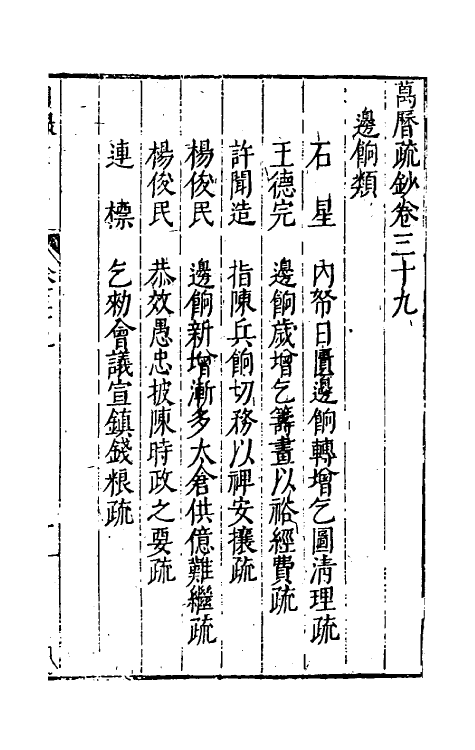 萬曆疏鈔卷三十九
邊餉類
石星 內帑日匱邊餉轉增乞圖清理疏
王德完 邊餉歲增乞籌畫以裕經費疏
許聞造 指陳兵餉切務以裨安攘疏
楊俊民 邊餉新增漸多太倉供億難繼疏
楊俊民 恭效愚忠披陳時政之要疏
連標 乞勑會議宣鎮錢粮疏